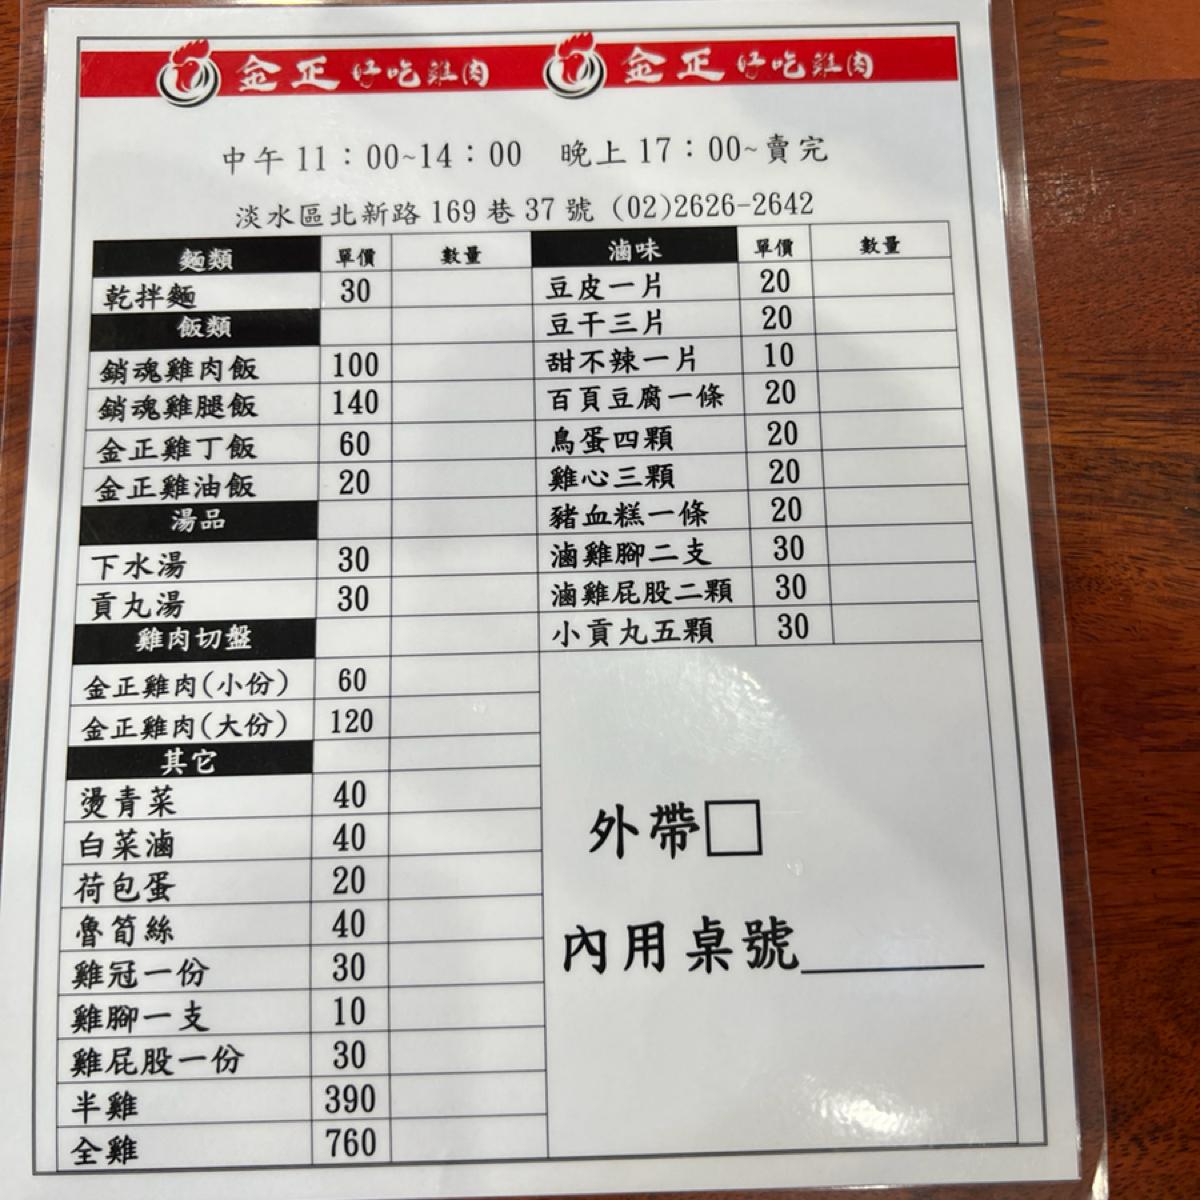 金正好吃雞肉 金正好吃雞肉
中午11：00~14：00 晚上17：00~賣完
淡水區北新路169巷37號 (02)2626-2642
麵類 單價 數量
乾拌麵 30
飯類
銷魂雞肉飯 100
銷魂雞腿飯 140
金正雞丁飯 60
金正雞油飯 20
湯品
下水湯 30
貢丸湯 30
雞肉切盤
金正雞肉(小份) 60
金正雞肉(大份) 120
其它
燙青菜 40
白菜滷 40
荷包蛋 20
魯筍絲 40
雞冠一份 30
雞腳一支 10
雞屁股一份 30
半雞 390
全雞 760
滷味 單價 數量
豆皮一片 20
豆干三片 20
甜不辣一片 10
百頁豆腐一條 20
鳥蛋四顆 20
雞心三顆 20
豬血糕一條 20
滷雞腳二支 30
滷雞屁股二顆 30
小貢丸五顆 30
外帶□
內用桌號______